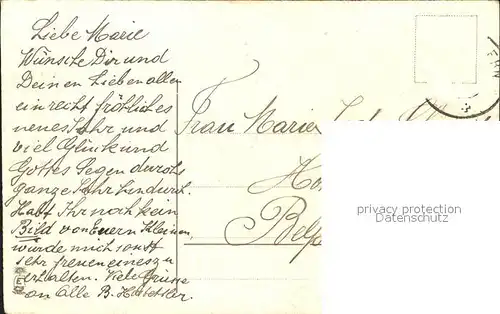 Liebe Marie
Wünsche Dir und
Deinen Lieben allen
ein recht fröhliches
neues Jahr und
viel Glück und
Gottes Segen durchs
ganze Jahr hindurch.
Habt Ihr noch kein
Bild von Euern Kleinen,
würde mich sonst
sehr freuen eines zu
erhalten. Viele Grüsse
an Alle B.
Frau Marie
privacy protection
Datenschutz